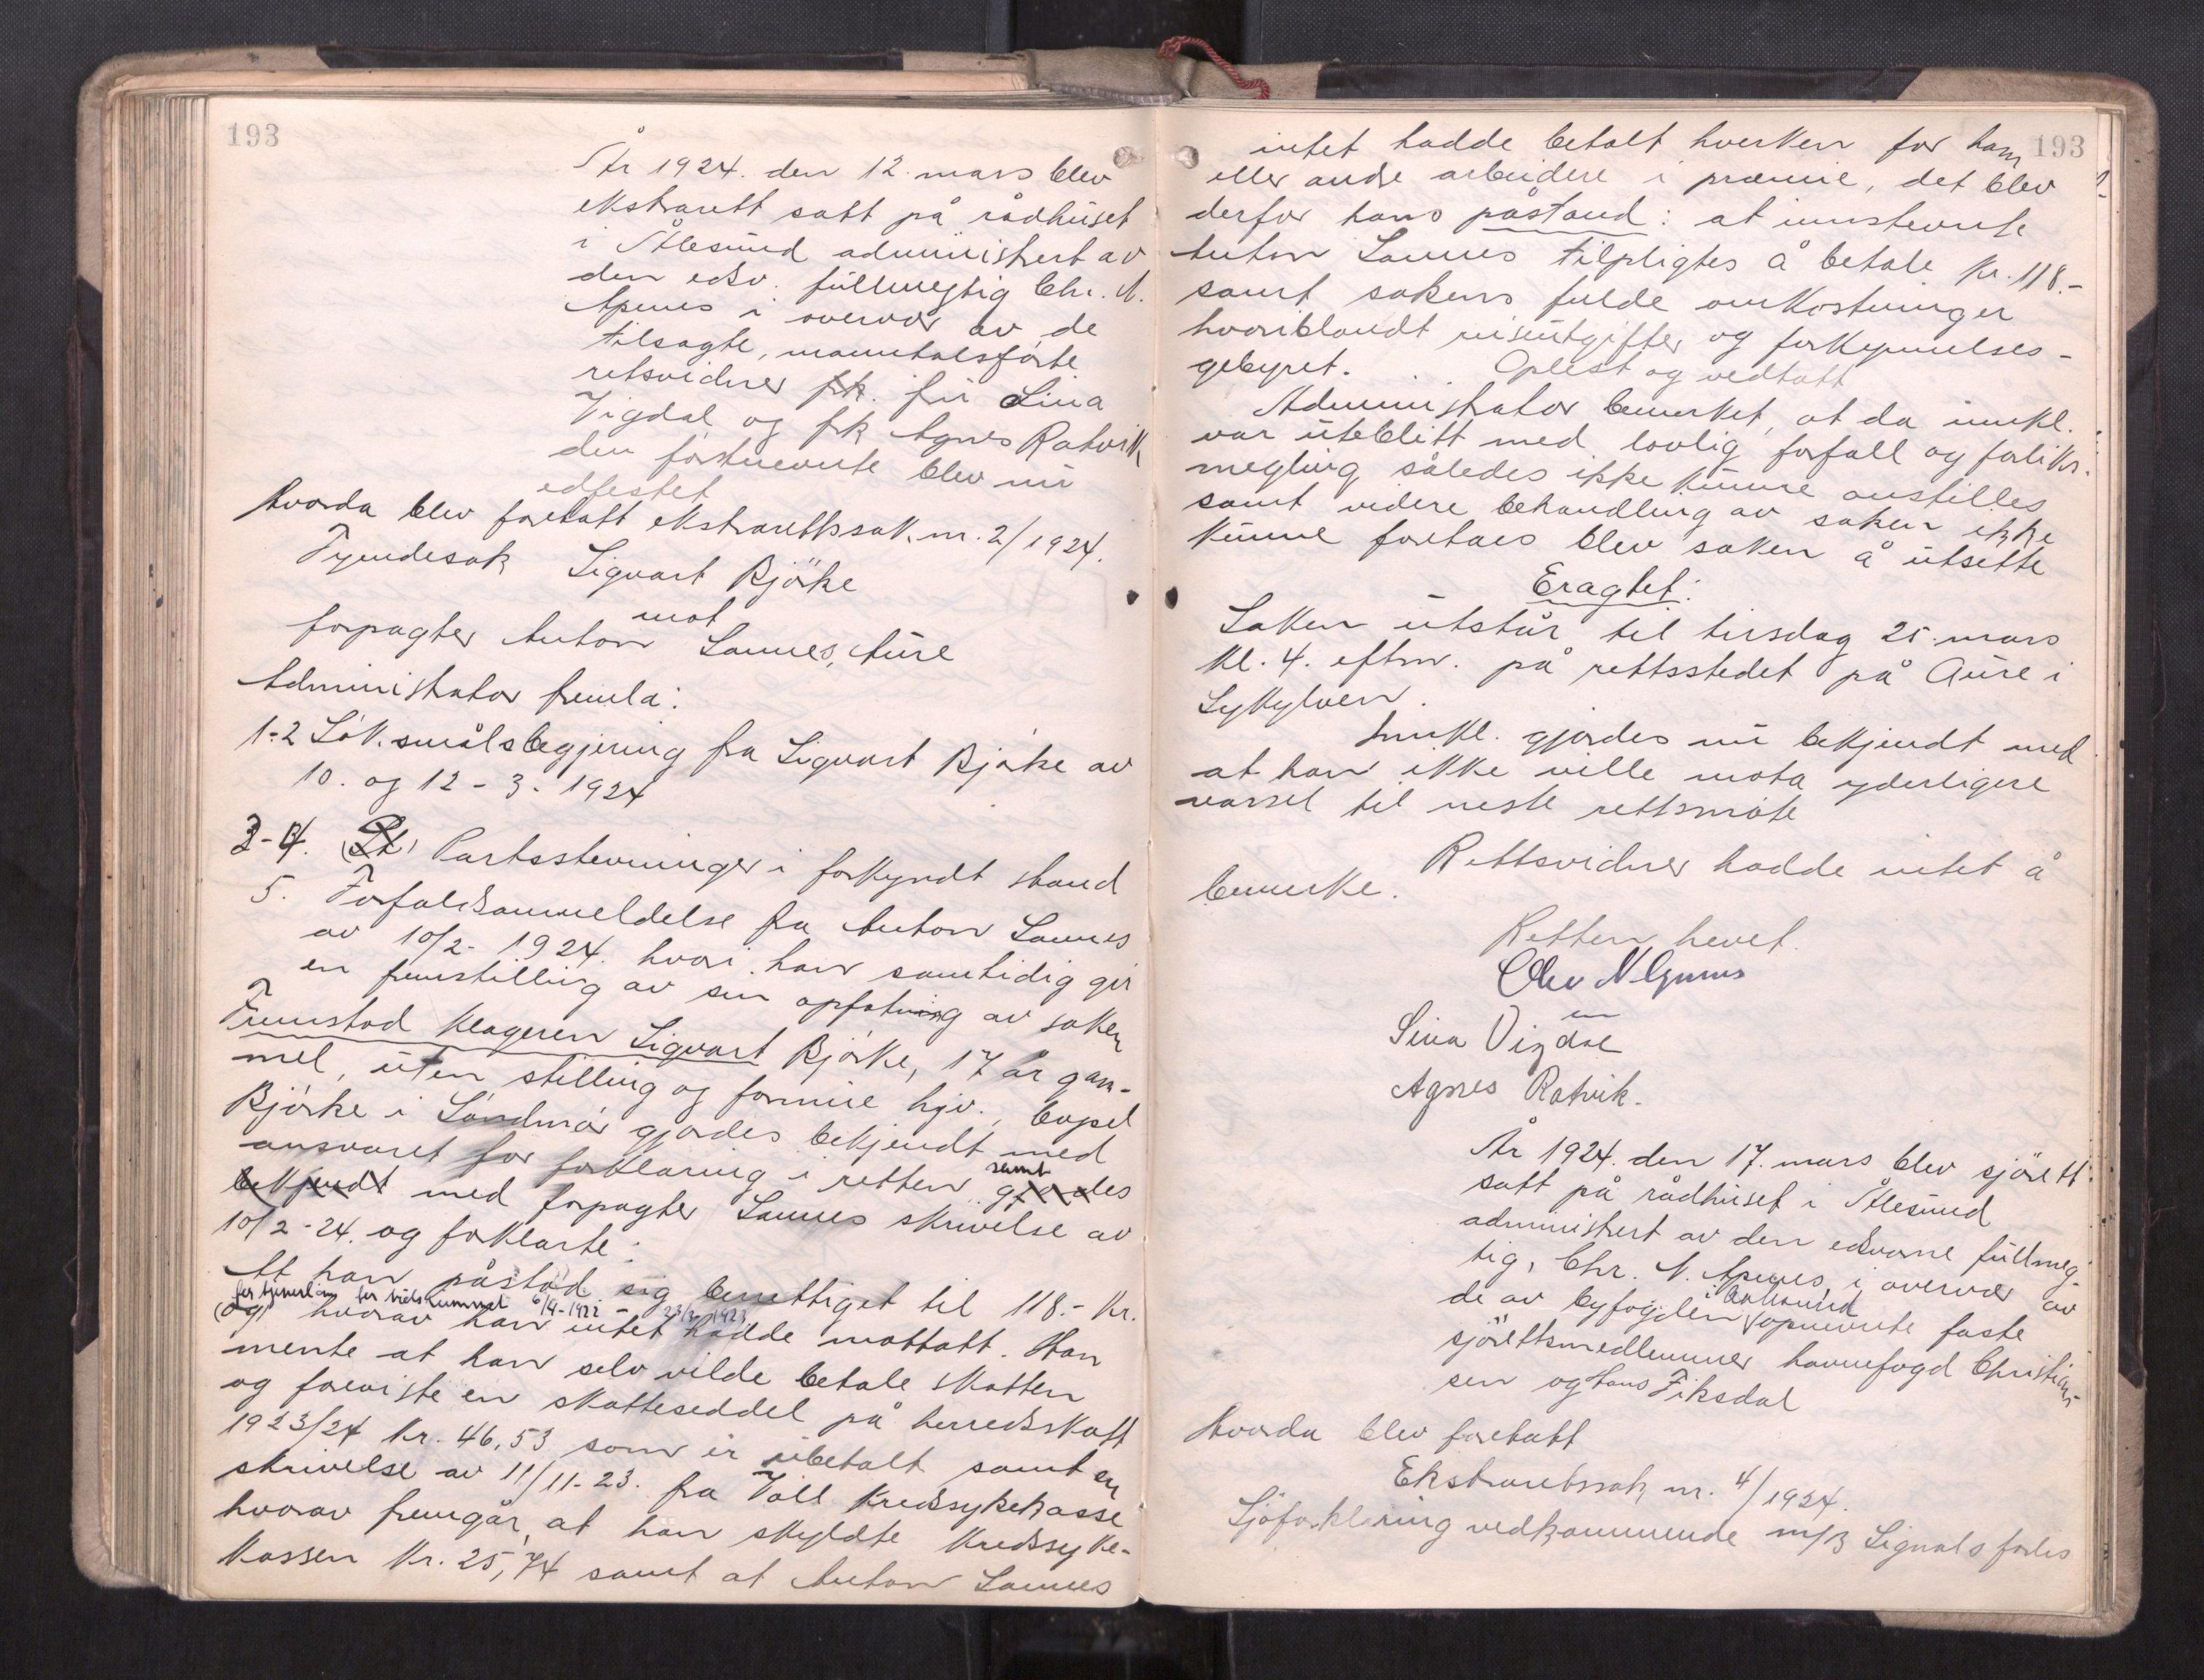 193
År 1924. den 12. mars blev
ekstrarett satt på rådhuset
i Ålesund administrert av
den edsv. fullmegtig Chr. N.
Apenes i overvær av de
tilsagte, manntalsførte
retsvidner frk. fru Lina
Vigdal og frk Agnes Ratvik
den førstnevnte blev nu
edfestet
Hvorda blev foretatt ekstrarettssak nr. 2/1924.
Tyendesak Sigvart Bjørke
mot
forpagter Anton Sannes, Aure
Administrator fremla:
1-2 Søksmålsbegjering fra Sigvart Bjørke av
10. og 12-3-1924
3-4. Partsstevninger i forkyndt stand
5. Forfaldsanmeldelse fra Anton Sannes
av 10/2-1924. hvori han samtidig gir
en fremstilling av sin opfatning av saken
Fremstod klageren Sigvart Bjørke, 17 år gam-
mel, uten stilling og formue hjv., bopel
Bjørke i Søndmør gjordes bekjendt med
ansvaret for forklaring i retten samt gjordes
bekjendt med forpagter Sannes skrivelse av
10/2-24. og forklarte:
At han påstod sig berettiget til 118.- kr.
for tjenerløn for tidsrummet 6/4-1922 - 23/3 1923
(og) hvorav han intet hadde mottatt. Han
mente at han selv vilde betale skatten
og foreviste en skatteseddel på herredsskatt
1923/24 kr. 46,53 som er ubetalt samt en
skrivelse av 11/11-23. fra Voll kredssykekasse
hvorav fremgår, at han skyldte kredssyke-
kassen kr. 25,74 samt at Anton Sannes
193
intet hadde betalt hverken for ham
eller andre arbeidere i præmie, det blev
derfor hans påstand: at innstevnte
Anton Sannes tilpligtes å betale kr. 118.-
samt sakens fulde omkostninger
hvoriblandt reiseutgifter og forkynnelses-
gebyret. Oplest og vedtatt
Administrator bemerket, at da innkl.
var uteblitt med lovlig forfall og forliks-
megling således ikke kunne anstilles
samt videre behandling av saken ikke
kunne foretaes blev saken å utsette
Eragtet:
Saken utstår til tirsdag 25. mars
kl. 4. eftm. på rettsstedet på Aure i
Sykylven.
Innkl. gjordes nu bekjendt med
at han ikke ville mota yderligere
varsel til neste rettsmøte
Rettsvidner hadde intet å
bemerke.
Retten hevet.
Chr N Apenes
en
Lina Vigdal
Agnes Ratvik.
År 1924. den 17. mars blev sjörett
satt på rådhuset i Ålesund
administrert av den edsvorne fullmeg-
tig, Chr. N. Apenes, i overvær av
de av byfogden i Ålesund opnevnte faste
sjörettsmedlemmer havnefogd Christian-
sen og Hans Fiksdal
Hvorda blev foretatt
Ekstraretssak nr. 4/1924.
Sjöforklaring vedkommende m/k Signals forlis